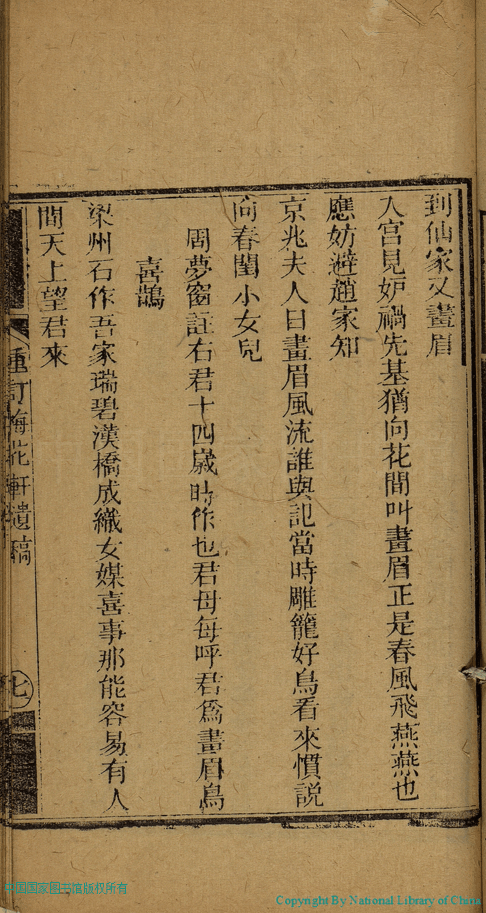 到仙家又畫眉
入宮見妒禍先基猶向花間叫畫眉正是春風飛燕燕也
應妨避趙家知
京兆夫人日畫眉風流誰與記當時雕籠好鳥看來慣説
向春閨小女兒
周夢窗註右君十四歲時作也君母每呼君爲畫眉鳥
喜鵲
梁州石作吾家瑞碧漢橋成織女媒喜事那能容易有人
間天上望君來
重訂梅花軒遺稿
七
中国国家图书馆版权所有
Copyright By National Library of Chin